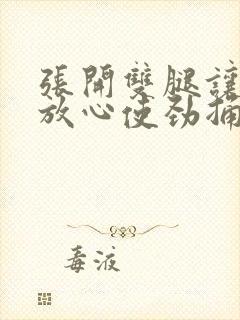 張開雙腿讓
放心使劲捅
毒液